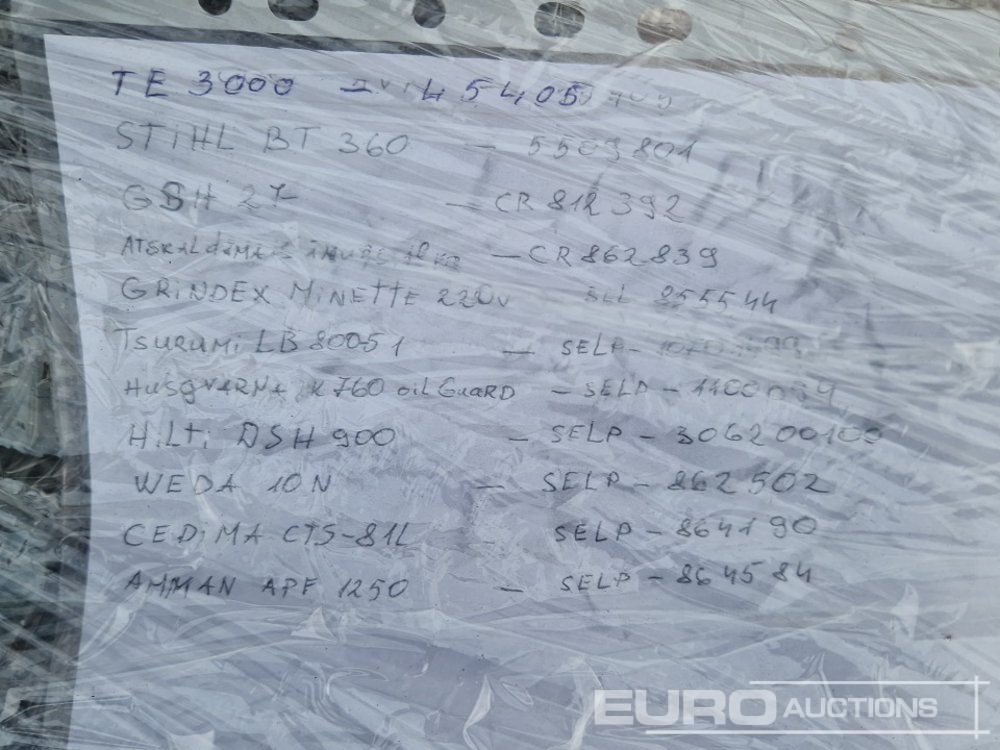 TE 3000 - 454050
STiHL BT 360 - 5509801
GBH 27 - CR 812392
- CR 862839
GRiNDEX MiNETTE 220V 855544
TSURUMi LB 80051 - SELP -
HUSQVARNA K760 oil GUARD - SELP -
HiLTi DSH 900 - SELP - 306200100
WEDA 10N - SELP - 862502
CEDiMA CTS-81L - SELP - 864190
AMMAN APF 1250 - SELP - 864584
EURO AUCTIONS